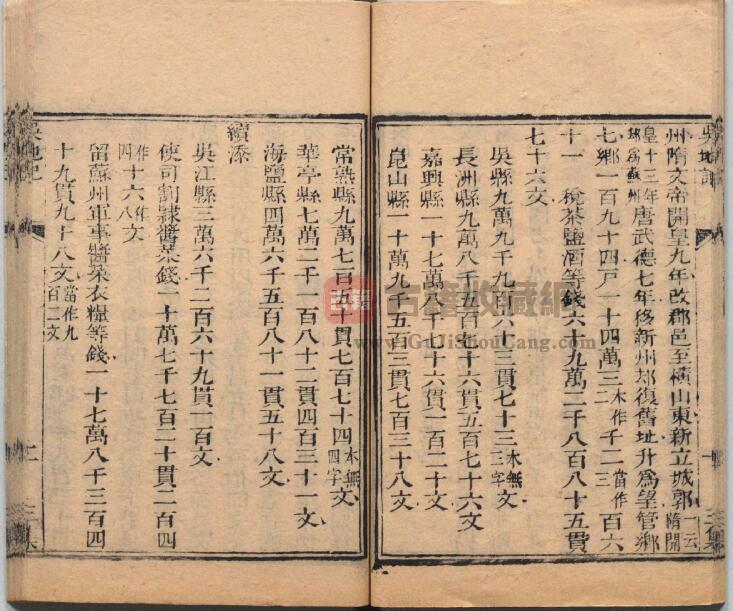 吳地記
州隋文帝開皇九年改郡邑至橫山東新立城郭一云隋開
皇十三年唐武德七年移新州却復舊址升爲望管鄉
郡爲蘇州
七鄉一百九十四戶一十四萬三一本作二千二當作三百六
十一 稅茶鹽酒等錢六十九萬二千八百八十五貫
七十六文
吳縣九萬九千九百六十三貫七十三本無三字文
長洲縣九萬八千五百七十六貫五百七十六文
嘉興縣一十七萬八千七十六貫一百二十文
崑山縣一十萬九千五百三貫七百三十八文
十
三集
常熟縣九萬七百五十貫七百七十四本無四字文
華亭縣七萬二千一百八十二貫四百三十一文
海鹽縣四萬六千五百八十一貫五十八文
續添
吳江縣三萬六千二百六十九貫一百文
使司割隸醬菜錢一十萬七千七百二十貫二百四
作四十六作八文
留蘇州軍事醬菜衣糧等錢一十七萬八千三百四
十九貫九十八文當作九百二文
吳地記
十一
三集
古籍收藏網
www.GuJiShouCang.com